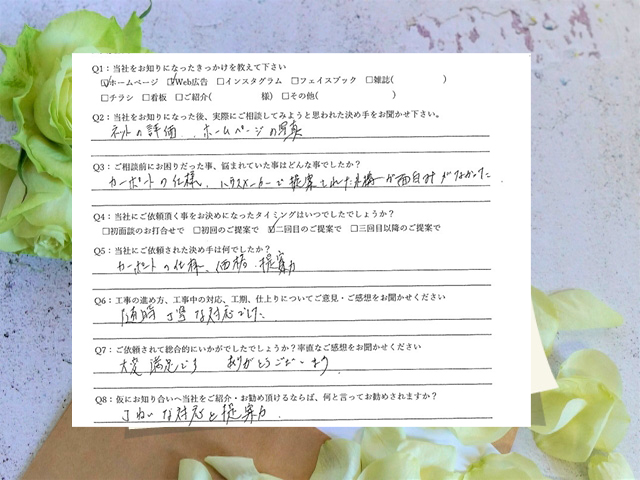 Q1：当社をお知りになったきっかけを教えて下さい
☑ホームページ ☑Web広告 □インスタグラム □フェイスブック □雑誌( )
□チラシ □看板 □ご紹介( 様) □その他( )
Q2：当社をお知りになった後、実際にご相談してみようと思われた決め手をお聞かせ下さい。
ネットの評価、ホームページの写真
Q3：ご相談前にお困りだった事、悩まれていた事はどんな事でしたか？
カーポートの仕様、ハウスメーカーで提案された外構が面白みがなかった。
Q4：当社にご依頼頂く事をお決めになったタイミングはいつでしたでしょうか？
□初面談のお打合せで □初回のご提案で ☑二回目のご提案で □三回目以降のご提案で
Q5：当社にご依頼された決め手は何でしたか？
カーポートの仕様、価格、提案力
Q6：工事の進め方、工事中の対応、工期、仕上りについてご意見・ご感想をお聞かせください
随時 丁寧な対応でした
Q7：ご依頼されて総合的にいかがでしたでしょうか？率直なご感想をお聞かせください
大変満足です ありがとうございます
Q8：仮にお知り合いへ当社をご紹介・お勧め頂けるならば、何と言ってお勧めされますか？
な対応と提案力